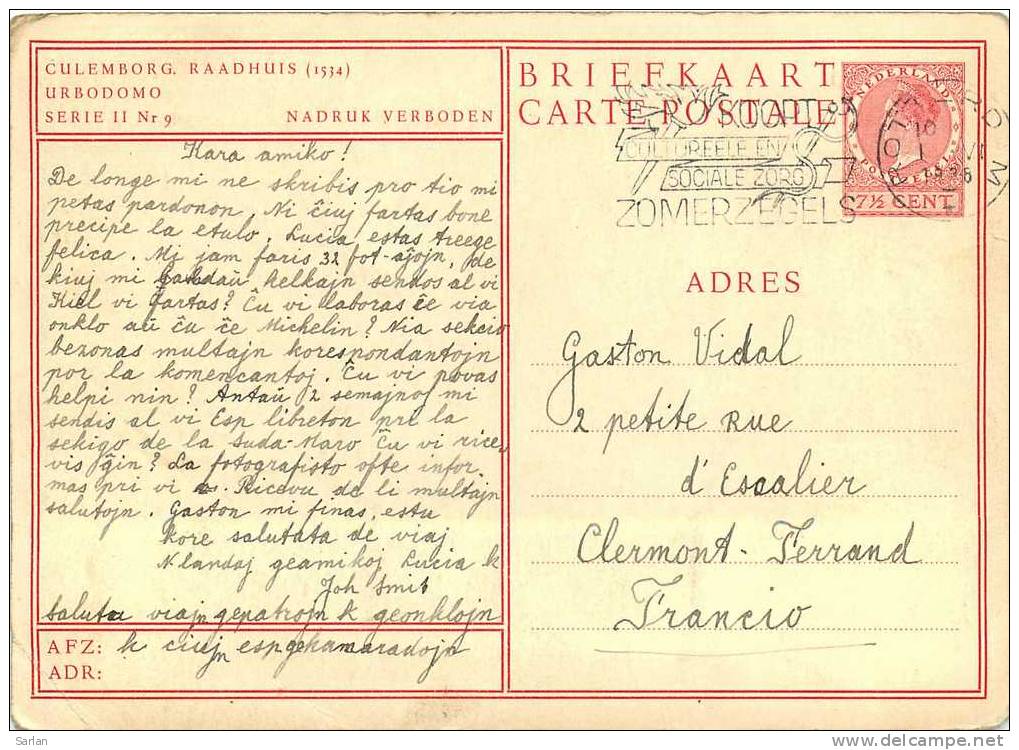 CULEMBORG. RAADHUIS (1534)
URBODOMO
SERIE II Nr 9 NADRUK VERBODEN
Kara amiko!
De longe mi ne skribis pro tio mi
petas pardonon. Ni ĉiuj fartas bone
precipe la etulo. Lucia estas treege
felica. Mi jam faris 32 fot-aĵojn, de
kiuj mi baldaŭ kelkajn sendos al vi
Kiel vi fartas? Ĉu vi laboras ĉe via
onklo aŭ ĉu ĉe Michelin? Nia sekcio
bezonas multajn korespondantojn
por la komencantoj. Ĉu vi povas
helpi nin? Antaŭ 2 semajnoj mi
sendis al vi Esp libreton pri la
sekigo de la Suda-Maro Ĉu vi rice,,
vis ĝin? La fotografisto ofte infor,
mas pri vi. Ricevu de li multajn
salutojn. Gaston mi finas, estu
kore salutata de viaj
N landaj geamikoj Lucia k
Joh Smit
Salutu viajn gepatrojn k geonklojn
AFZ: k ĉiujn esp gekamaradojn
ADR:
BRIEFKAART
CARTE POSTALE
NEDERLAND
7½ CENT
KOOPT
CULTUREELE EN
SOCIALE ZORG
ZOMERZEGELS
ROTTERDAM
10
VI
1936
ADRES
Gaston Vidal
2 petite Rue
d'Escalier
Clermont-Ferrand
Francio
Sarlan
www.delcampe.net